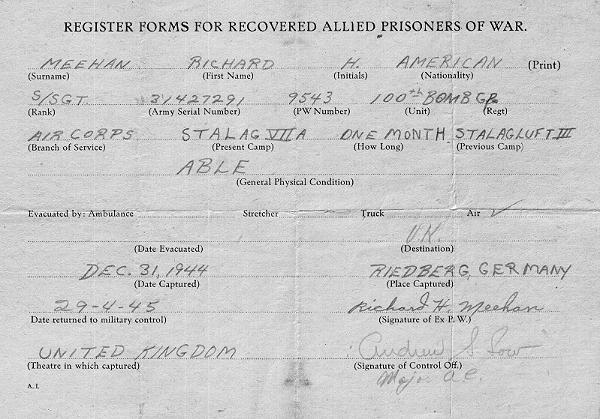 REGISTER FORMS FOR RECOVERED ALLIED PRISONERS OF WAR.
MEEHAN RICHARD H. AMERICAN (Print)
(Surname) (First Name) (Initials) (Nationality)
S/SGT 31427291 9543 100th BOMB GP.
(Rank) (Army Serial Number) (PW Number) (Unit) (Regt)
AIR CORPS STALAG VII A ONE MONTH STALAGLUFT III
(Branch of Service) (Present Camp) (How Long) (Previous Camp)
ABLE
(General Physical Condition)
Evacuated by: Ambulance Stretcher Truck Air ✓
U.K.
(Date Evacuated) (Destination)
DEC. 31, 1944 RIEDBERG, GERMANY
(Date Captured) (Place Captured)
29-4-45 Richard H. Meehan
Date returned to military control) (Signature of Ex P.W.)
UNITED KINGDOM Andrew S. Low
(Theatre in which captured) (Signature of Control Off.)
Major A.C.
A.I.